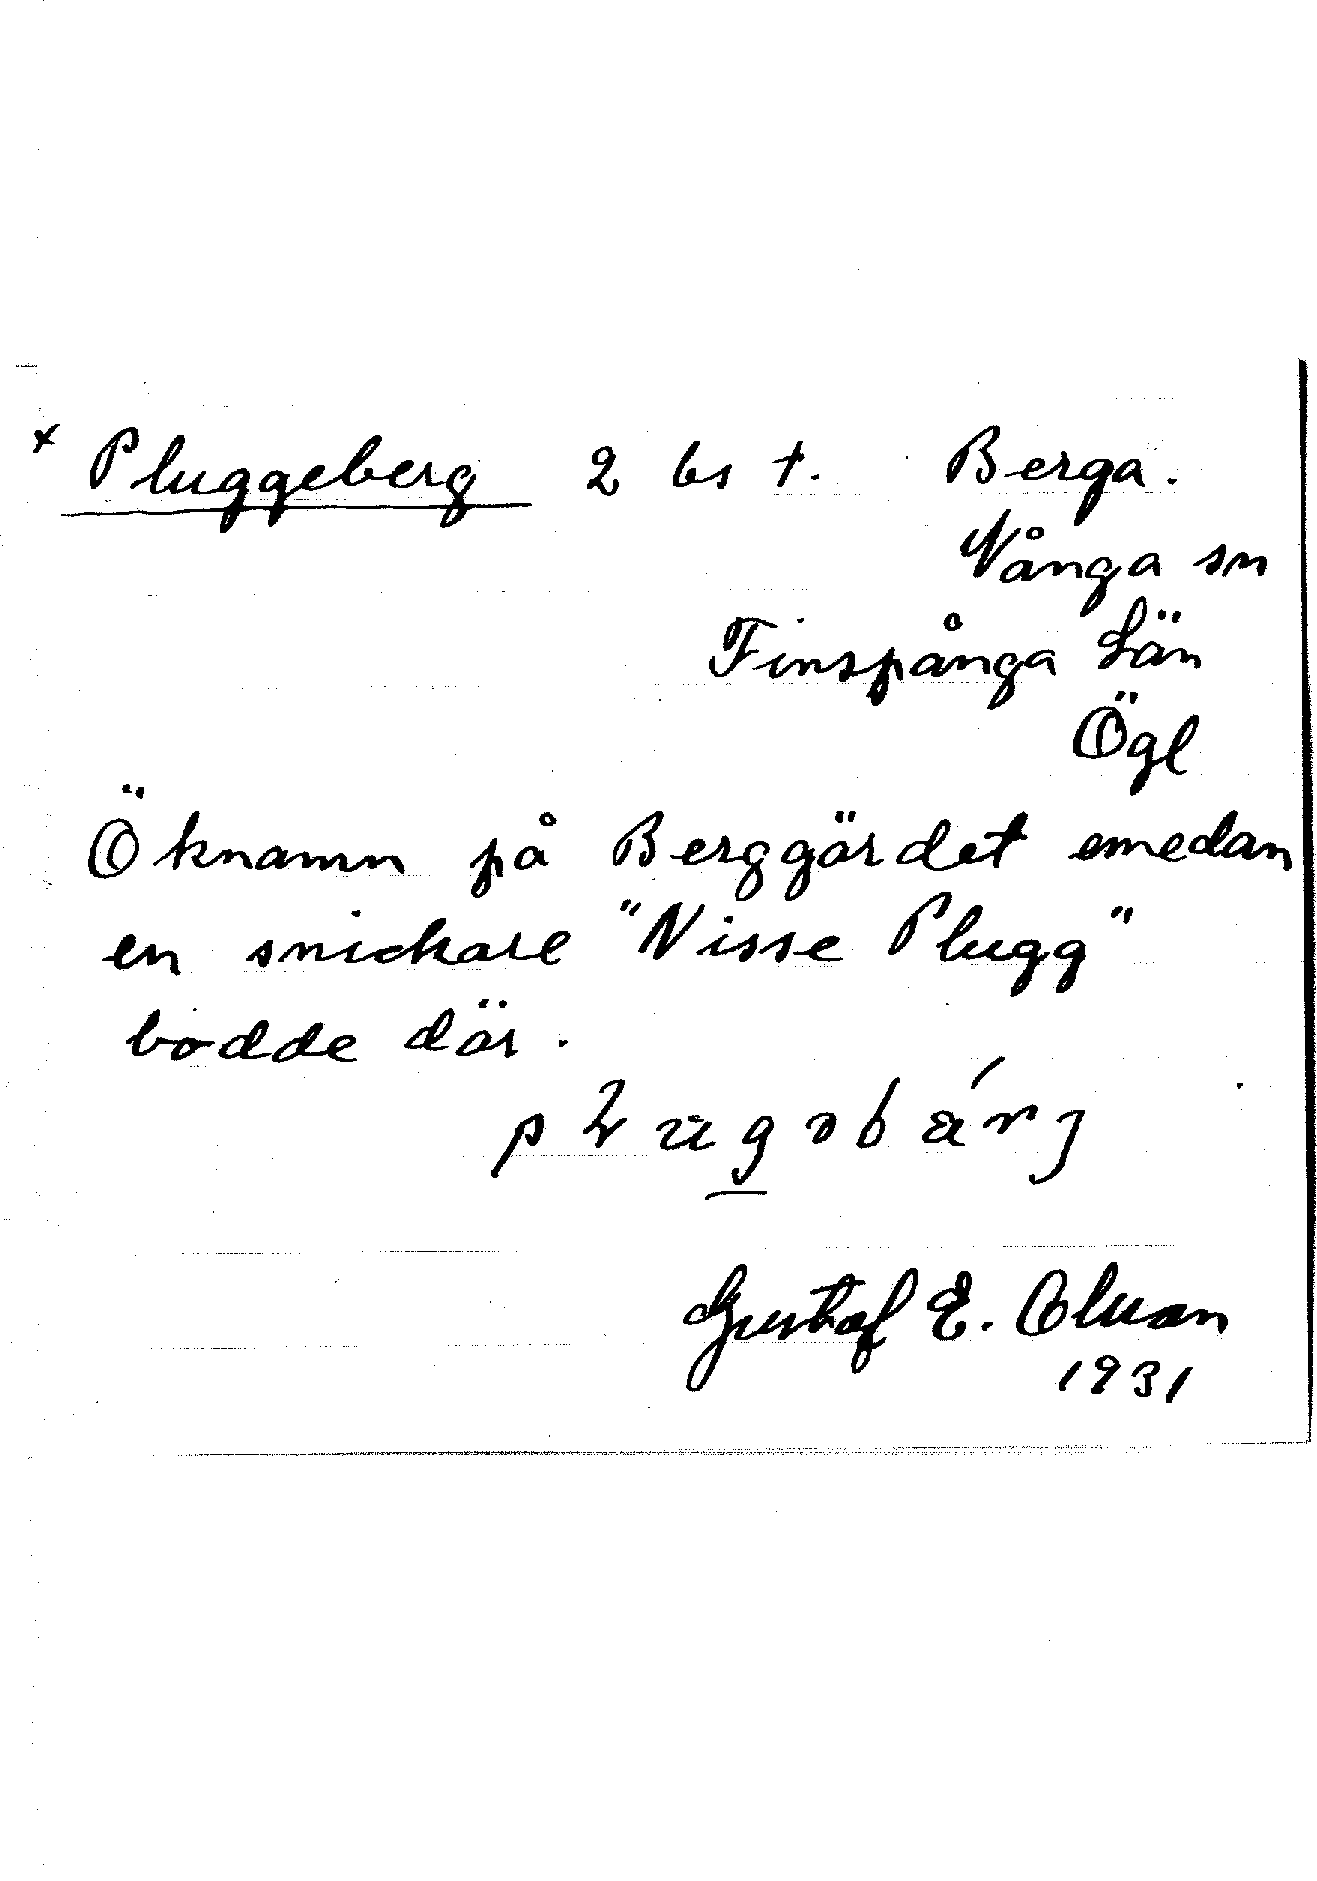 x Pluggeberg 2 bst. Berga.
Vånga sn
Finspånga Län
Ögl
Öknamn på Berggärdet emedan
en snickare "Nisse Plugg"
bodde där.
Gustaf E.
1931